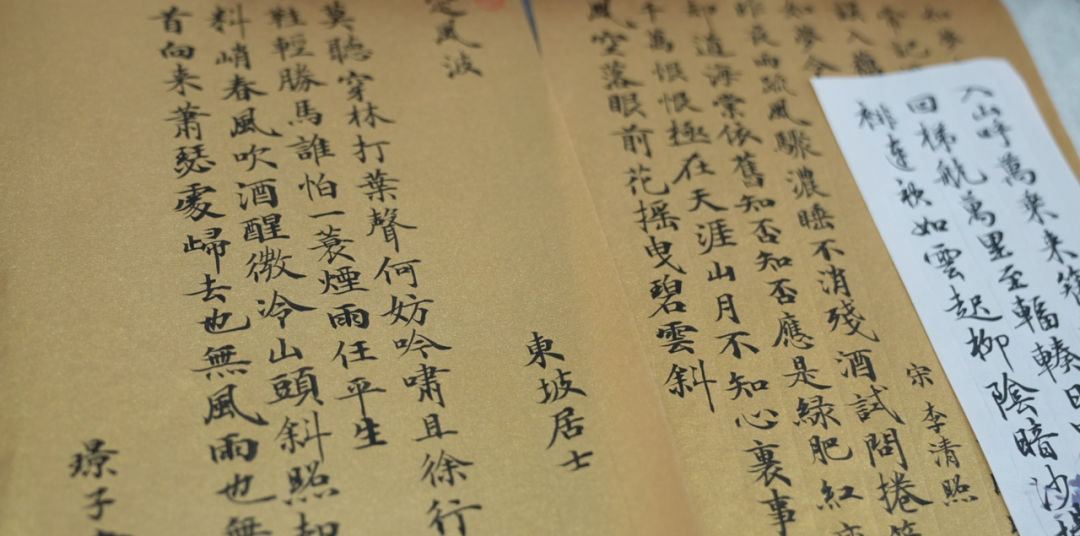 入山呼萬来
回梯航萬里至輻輳
達袂如雲起柳陰暗沙
如夢
常記
誤入
如夢令 宋 李清照
昨夜雨疏風驟濃睡不消殘酒試問捲
却道海棠依舊知否知否應是緑肥紅
千萬恨恨極在天涯山月不知心裏事
風空落眼前花摇曳碧雲斜
定風波 東坡居士
莫聽穿林打葉聲何妨吟嘯且徐行
鞋輕勝馬誰怕一蓑煙雨任平生
料峭春風吹酒醒微冷山頭斜照却
首向来蕭瑟處歸去也無風雨也無
璟子